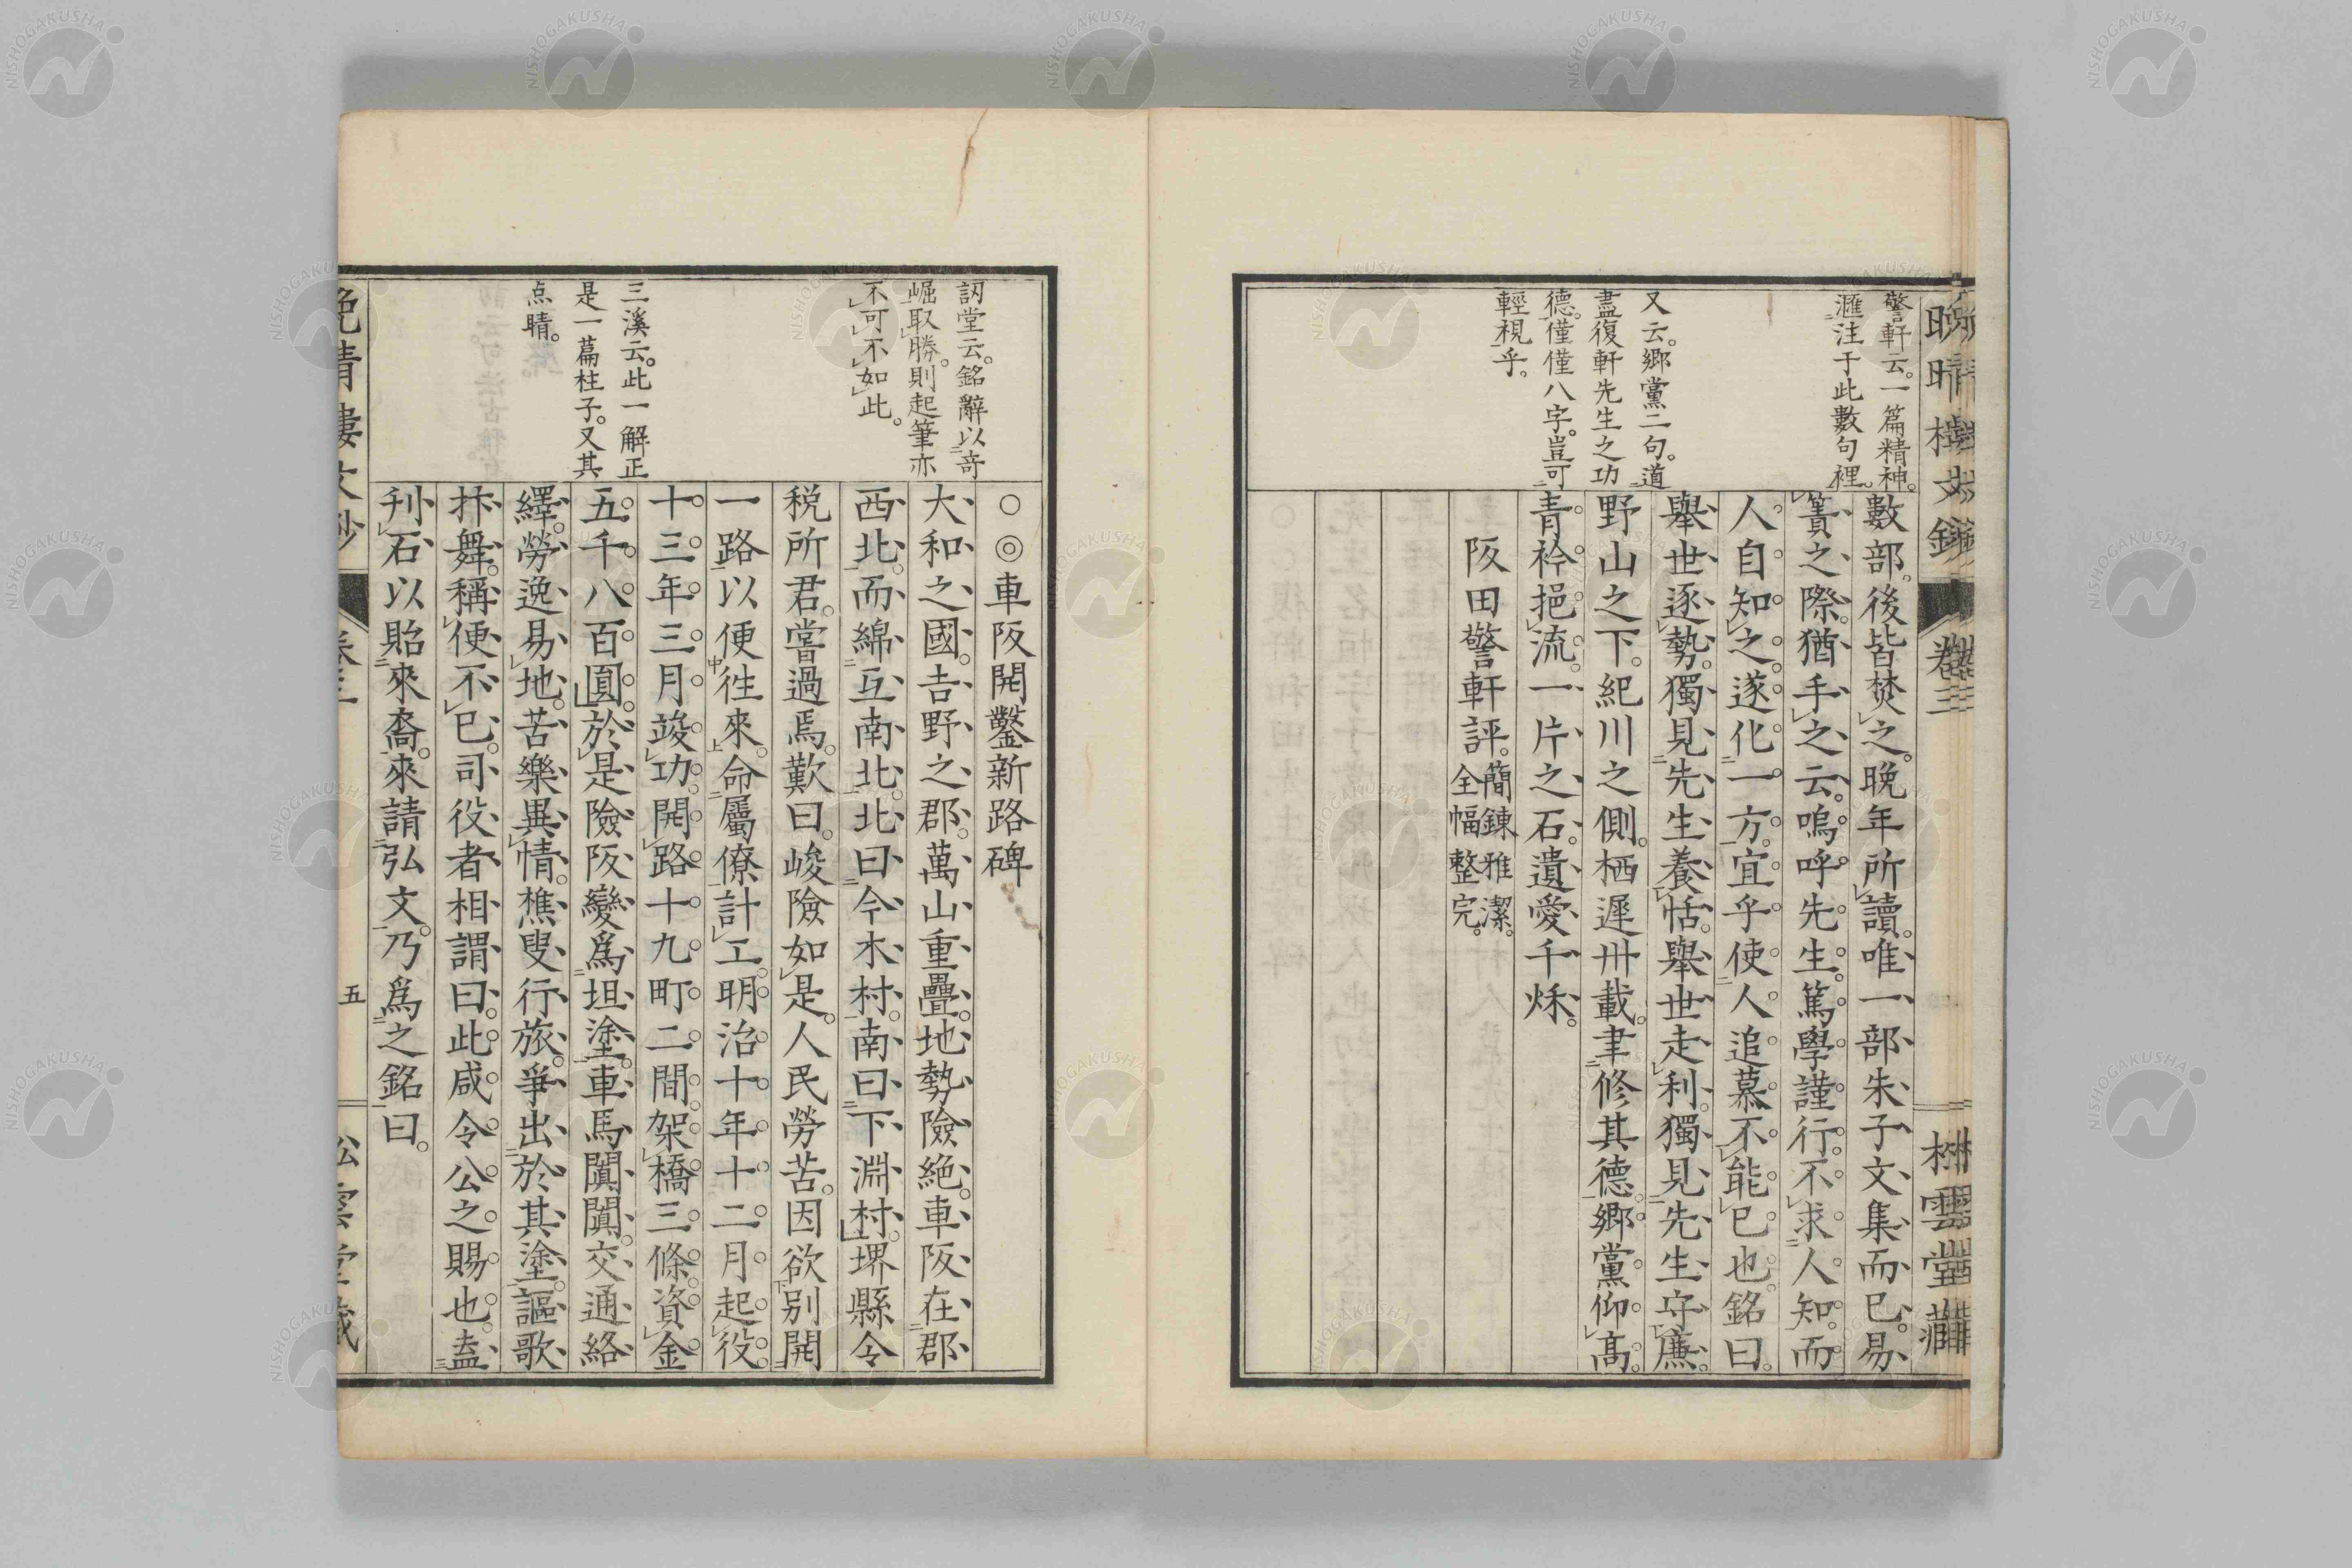 晩晴樓文鈔
卷三
松雲堂藏
警軒云。一篇精神。
滙注于此數句裡。
又云。鄉黨二句。道
盡復軒先生之功
德。僅僅八字。豈可
輕視乎。
數部。後皆焚之。晩年所讀。唯一部朱子文集而已。易
簀之際。猶手之云。嗚呼先生。篤學謹行。不求人知。而
人自知之。遂化一方。宜乎使人追慕不能已也。銘曰。
舉世逐勢。獨見先生養恬。舉世走利。獨見先生守廉。
野山之下。紀川之側。栖遲卅載。聿修其德。鄉黨仰高。
青衿挹流。一片之石。遺愛千烁。
阪田警軒評。簡鍊雅潔。
全幅整完。
訒堂云。銘辭以奇
崛取勝。則起筆亦
不可不如此。
三溪云。此一解正
是一篇柱子。又其
点睛。
○◎車阪開鑿新路碑
大和之國。吉野之郡。萬山重疊。地勢險絶。車阪在郡
西北。而綿亙南北。北曰今木村。南曰下淵村。堺縣令
税所君。嘗過焉。歎曰。峻險如是。人民勞苦。因欲別開
一路以便往來。命屬僚計工。明治十年十二月起役。
十三年三月竣功。開路十九町二間。架橋三條。資金
五千八百圓。於是險阪變爲坦塗。車馬闐闐。交通絡
繹。勞逸易地。苦樂異情。樵叟行旅。爭出於其塗。謳歌
抃舞。稱便不已。司役者相謂曰。此咸令公之賜也。盍
刋石以貽來裔。來請弘文。乃爲之銘曰。
晩晴樓文鈔
卷三
五
松雲堂藏